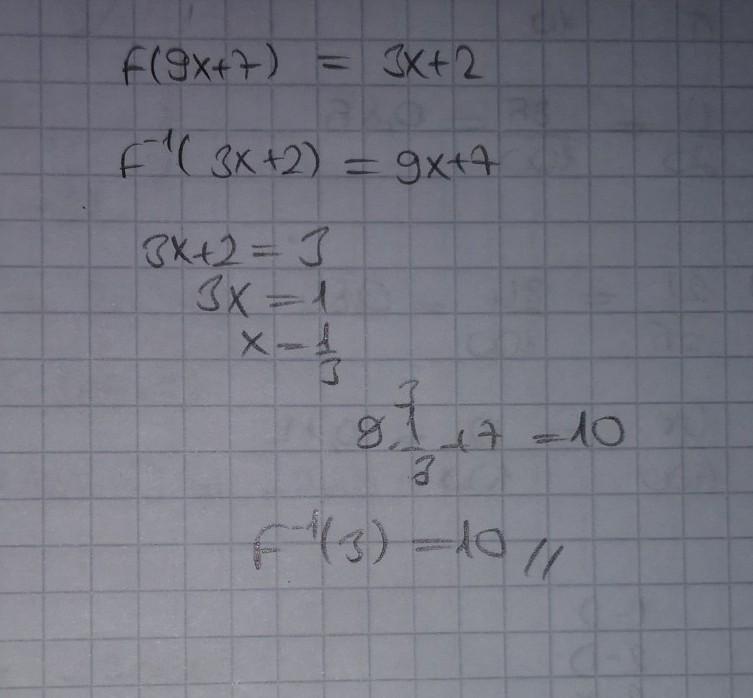 f(9x+7) = 3x+2
f⁻¹(3x+2) = 9x+7
3x+2 = 3
3x = 1
x = 1/3
9·1/3 + 7 = 10
f⁻¹(3) = 10 //